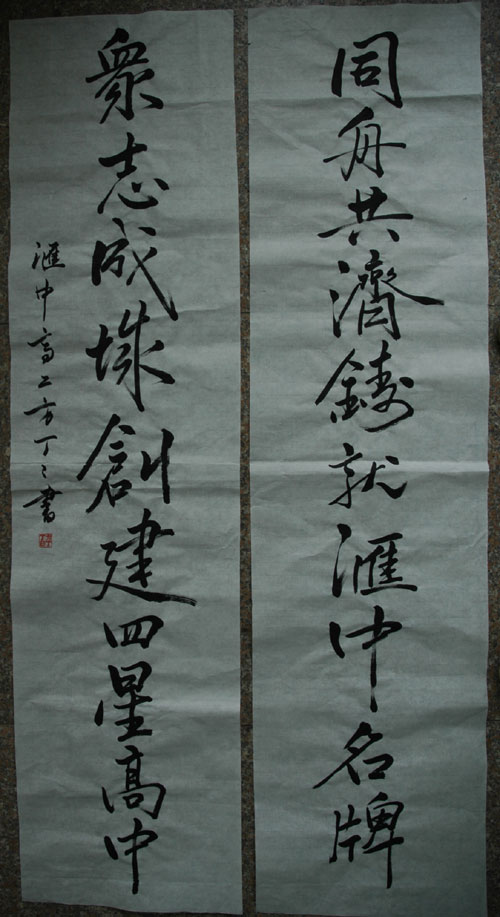 同舟共濟鑄就滙中名牌
衆志成城創建四星高中
滙中高二方丁丁書